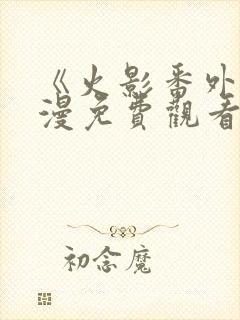 《火影番外
漫免費觀看
初念魔